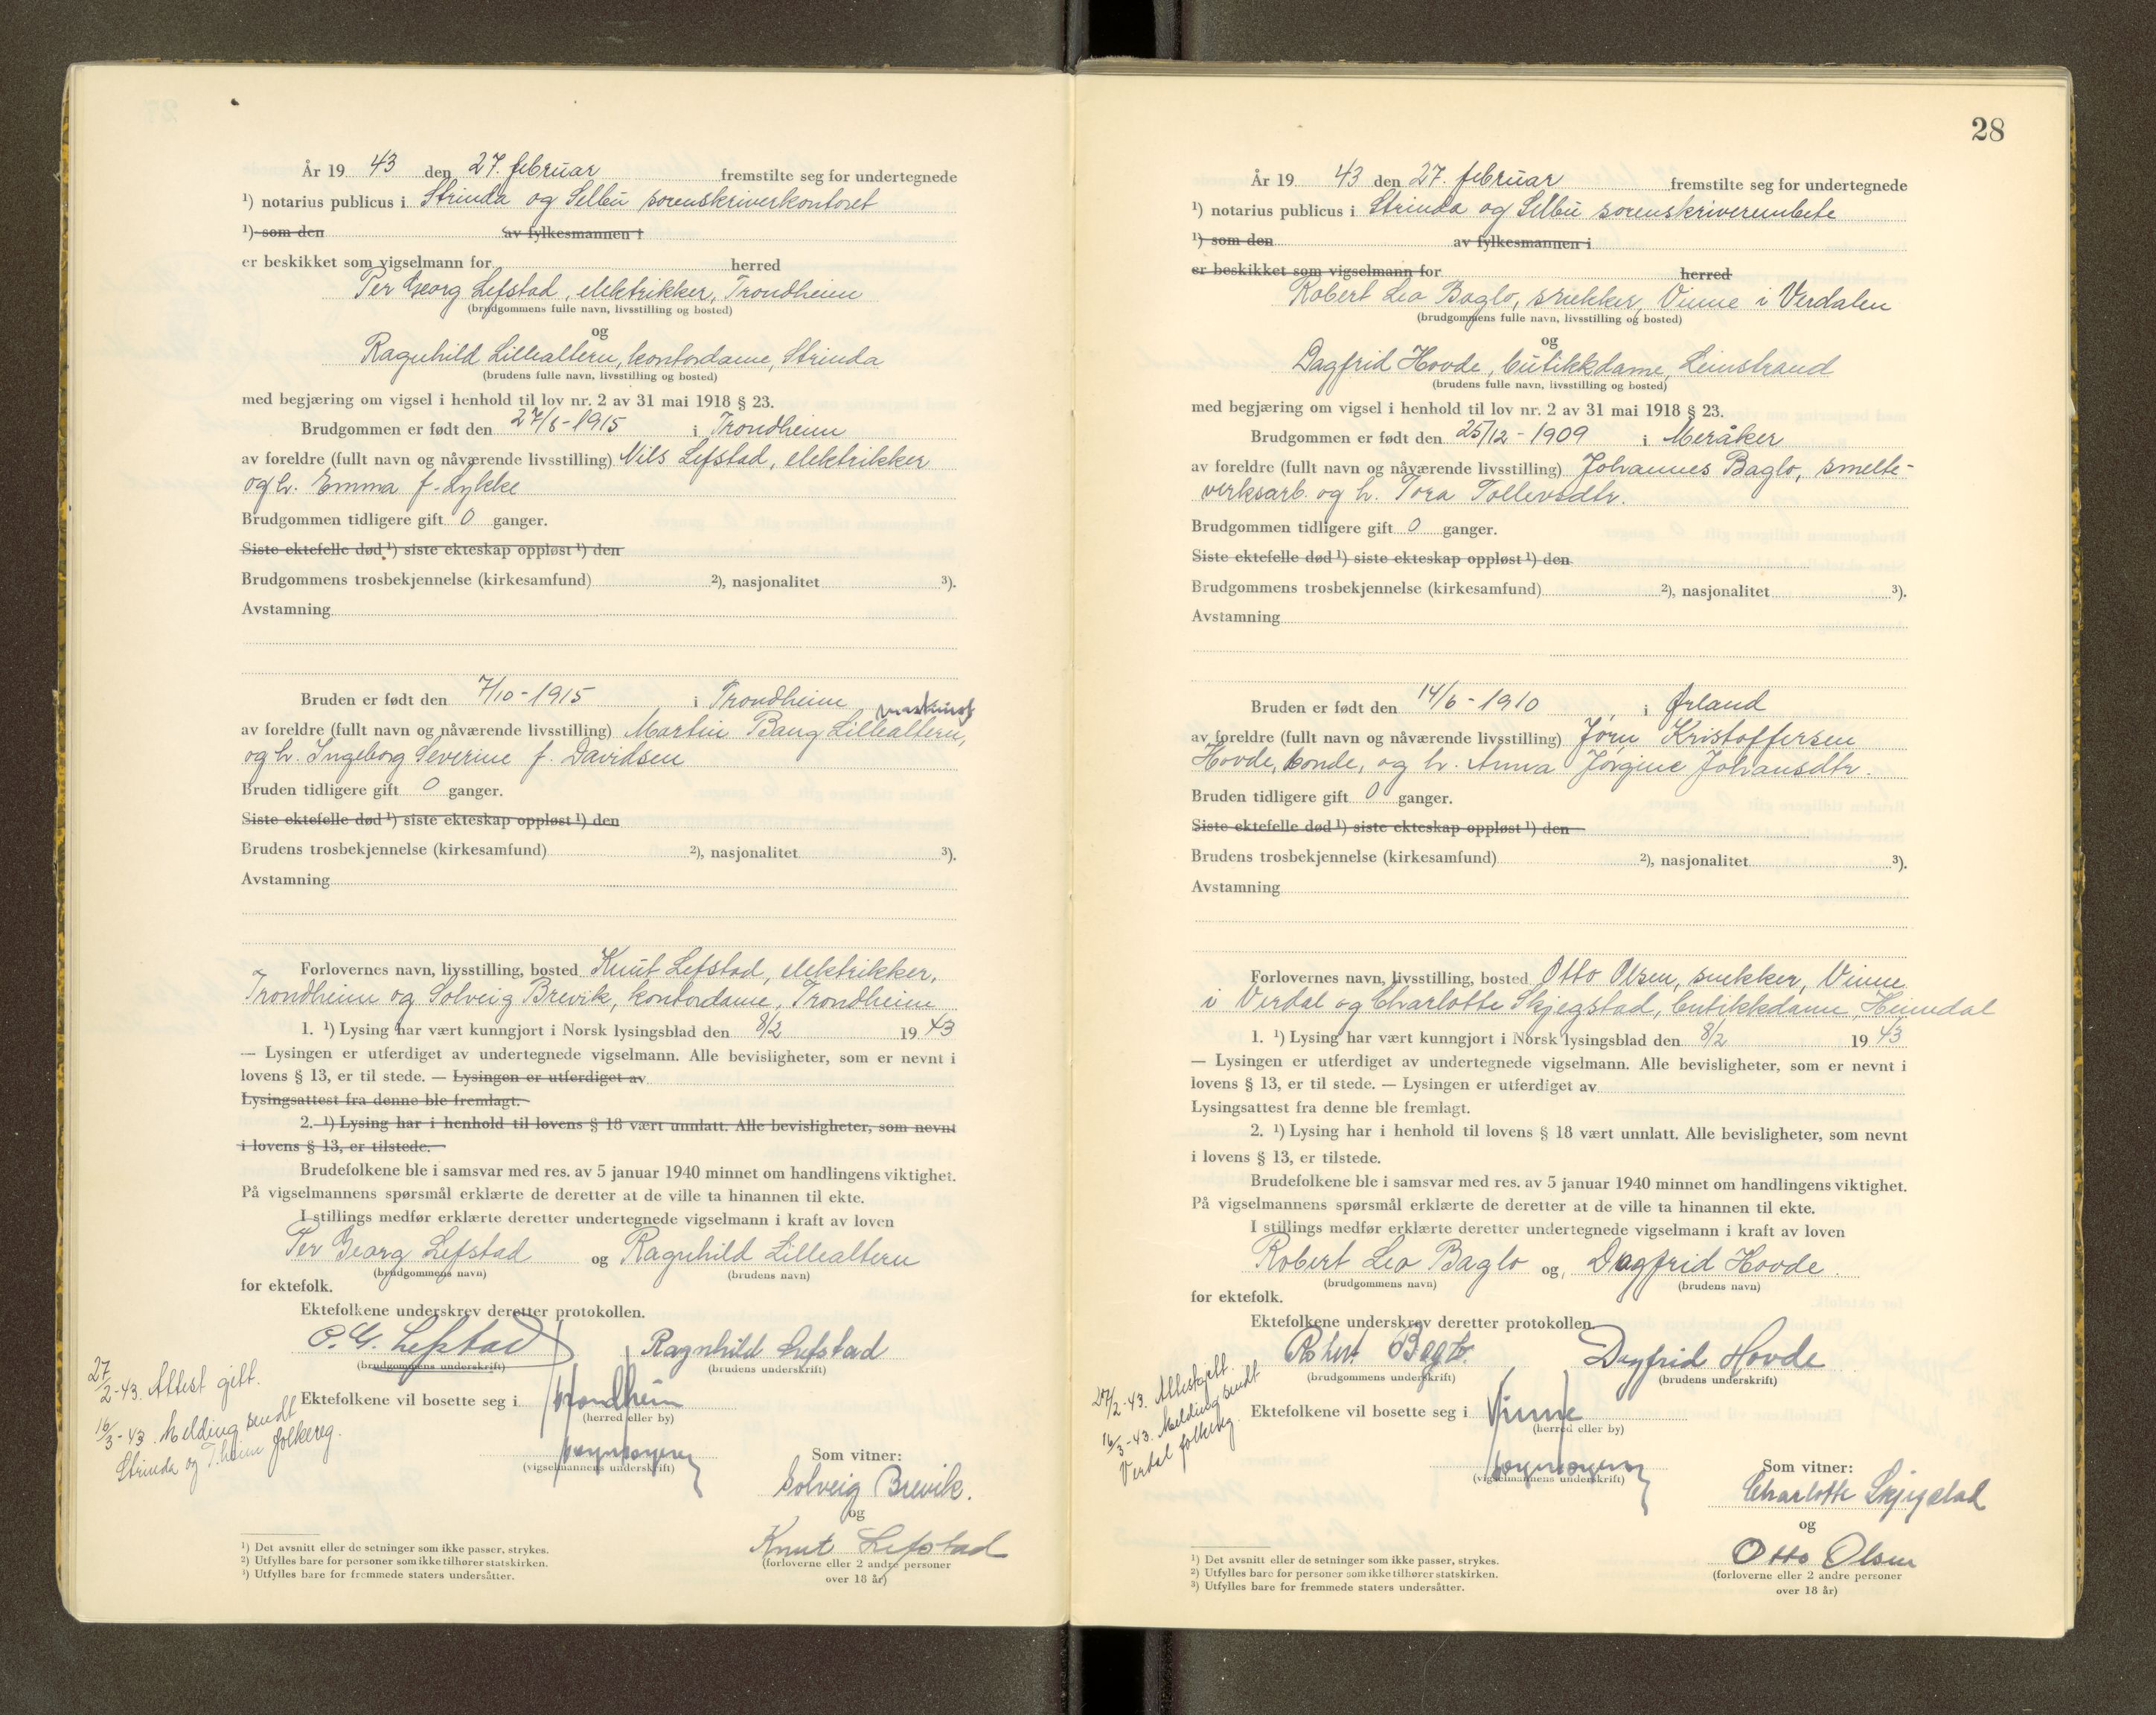 År 19 43 den 27. februar fremstilte seg for undertegnede
¹) notarius publicus i Strinda og Selbu sorenskriverkontoret
¹) som den av fylkesmannen i
er beskikket som vigselmann for herred
Per Georg Lefstad, elektrikker, Trondheim
(brudgommens fulle navn, livsstilling og bosted)
og
Ragnhild Lillealtern, kontordame, Strinda
(brudens fulle navn, livsstilling og bosted)
med begjæring om vigsel i henhold til lov nr. 2 av 31 mai 1918 § 23.
Brudgommen er født den 27/6-1915 i Trondheim
av foreldre (fullt navn og nåværende livsstilling) Nils Lefstad, elektrikker
og h. Emma f. Lykke
Brudgommen tidligere gift 0 ganger.
Siste ektefelle død ¹) siste ekteskap oppløst ¹) den
Brudgommens trosbekjennelse (kirkesamfund) ²), nasjonalitet ³).
Avstamning
Bruden er født den 7/10-1915 i Trondheim
maskinist
av foreldre (fullt navn og nåværende livsstilling) Martin Bang Lillealtern,
og h. Ingeborg Severine f. Davidsen
Bruden tidligere gift 0 ganger.
Siste ektefelle død ¹) siste ekteskap oppløst ¹) den
Brudens trosbekjennelse (kirkesamfund) ²), nasjonalitet ³).
Avstamning
Forlovernes navn, livsstilling, bosted Knut Lefstad, elektrikker,
Trondheim og Solveig Brevik, kontordame, Trondheim
1. ¹) Lysing har vært kunngjort i Norsk lysingsblad den 8/2 19 43
— Lysingen er utferdiget av undertegnede vigselmann. Alle bevisligheter, som er nevnt i
lovens § 13, er til stede. — Lysingen er utferdiget av
Lysingsattest fra denne ble fremlagt.
2. ¹) Lysing har i henhold til lovens § 18 vært unnlatt. Alle bevisligheter, som nevnt
i lovens § 13, er tilstede.
Brudefolkene ble i samsvar med res. av 5 januar 1940 minnet om handlingens viktighet.
På vigselmannens spørsmål erklærte de deretter at de ville ta hinannen til ekte.
I stillings medfør erklærte deretter undertegnede vigselmann i kraft av loven
Per Georg Lefstad og Ragnhild Lillealtern
(brudgommens navn) (brudens navn)
for ektefolk.
Ektefolkene underskrev deretter protokollen.
P. G. Lefstad Ragnhild Lefstad
(brudgommens underskrift) (brudens underskrift)
27/2-43. Attest gitt.
Ektefolkene vil bosette seg i Trondheim
(herred eller by)
16/3-43. Melding sendt
Strinda og T.heim folkereg.
(vigselmannens underskrift)
Som vitner:
Solveig Brevik.
og
Knut Lefstad
(forloverne eller 2 andre personer
over 18 år)
¹) Det avsnitt eller de setninger som ikke passer, strykes.
²) Utfylles bare for personer som ikke tilhører statskirken.
³) Utfylles bare for fremmede staters undersåtter.
28
År 19 43 den 27. februar fremstilte seg for undertegnede
¹) notarius publicus i Strinda og Selbu sorenskriverembete
¹) som den av fylkesmannen i
er beskikket som vigselmann for herred
Robert Leo Baglo, snekker, Vinne i Verdalen
(brudgommens fulle navn, livsstilling og bosted)
og
Dagfrid Hovde, butikkdame, Leinstrand
(brudens fulle navn, livsstilling og bosted)
med begjæring om vigsel i henhold til lov nr. 2 av 31 mai 1918 § 23.
Brudgommen er født den 25/12-1909 i Meråker
av foreldre (fullt navn og nåværende livsstilling) Johannes Baglo, smelte-
verksarb. og h. Tora Tollevsdtr.
Brudgommen tidligere gift 0 ganger.
Siste ektefelle død ¹) siste ekteskap oppløst ¹) den
Brudgommens trosbekjennelse (kirkesamfund) ²), nasjonalitet ³).
Avstamning
Bruden er født den 14/6-1910 i Ørland
av foreldre (fullt navn og nåværende livsstilling) Jørn Kristoffersen
Hovde, bonde, og h. Anna Jørgine Johansdtr.
Bruden tidligere gift 0 ganger.
Siste ektefelle død ¹) siste ekteskap oppløst ¹) den
Brudens trosbekjennelse (kirkesamfund) ²), nasjonalitet ³).
Avstamning
Forlovernes navn, livsstilling, bosted Otto Olsen, snekker, Vinne
i Verdal og Charlotte Skjegstad, butikkdame, Heimdal
1. ¹) Lysing har vært kunngjort i Norsk lysingsblad den 8/2 19 43
— Lysingen er utferdiget av undertegnede vigselmann. Alle bevisligheter, som er nevnt i
lovens § 13, er til stede. — Lysingen er utferdiget av
Lysingsattest fra denne ble fremlagt.
2. ¹) Lysing har i henhold til lovens § 18 vært unnlatt. Alle bevisligheter, som nevnt
i lovens § 13, er tilstede.
Brudefolkene ble i samsvar med res. av 5 januar 1940 minnet om handlingens viktighet.
På vigselmannens spørsmål erklærte de deretter at de ville ta hinannen til ekte.
I stillings medfør erklærte deretter undertegnede vigselmann i kraft av loven
Robert Leo Baglo og Dagfrid Hovde.
(brudgommens navn) (brudens navn)
for ektefolk.
Ektefolkene underskrev deretter protokollen.
Robert Baglo. Dagfrid Hovde
(brudgommens underskrift) (brudens underskrift)
27/2-43. Attest gitt.
Ektefolkene vil bosette seg i Vinne
(herred eller by)
16/3-43. Melding sendt
Verdal folkereg.
(vigselmannens underskrift)
Som vitner:
Charlotte Skjegstad
og
Otto Olsen
(forloverne eller 2 andre personer
over 18 år)
¹) Det avsnitt eller de setninger som ikke passer, strykes.
²) Utfylles bare for personer som ikke tilhører statskirken.
³) Utfylles bare for fremmede staters undersåtter.